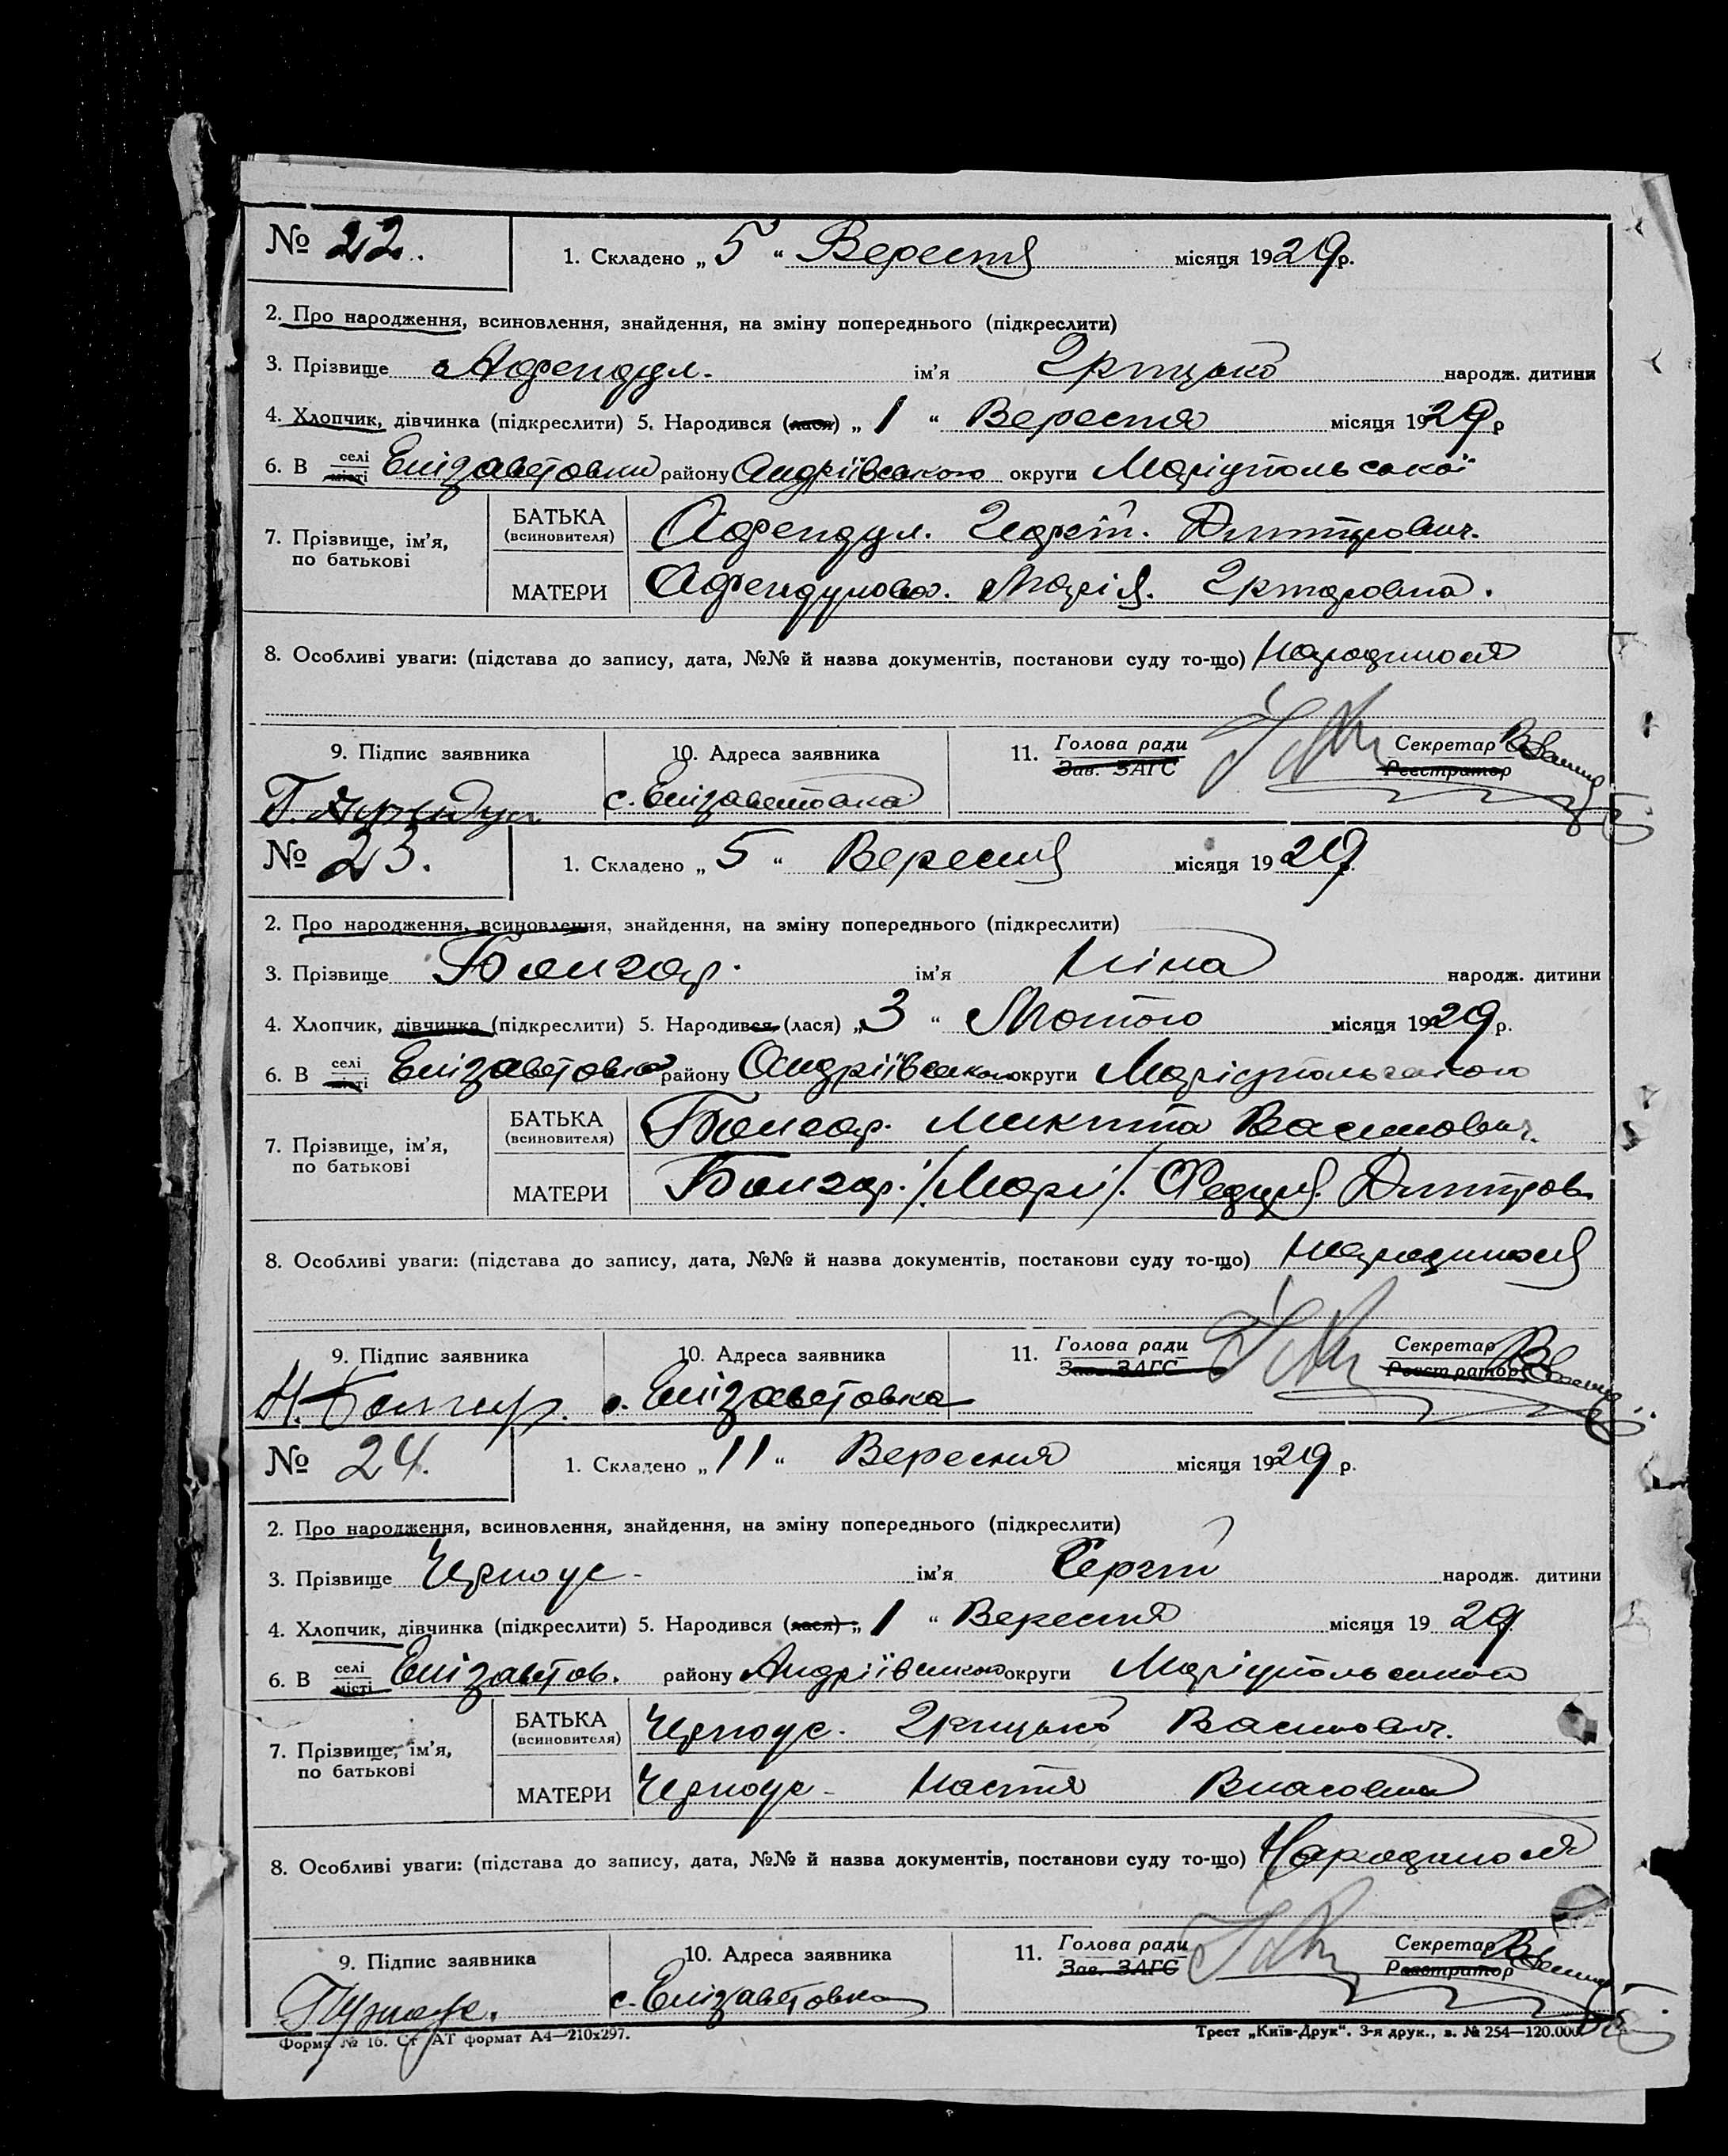 № 22. 1. Складено „ 5 “ Вересня місяця 1929р.
2. Про народження, всиновлення, знайдення, на зміну попереднього (підкреслити)
3. Прізвище Афендул. ім'я Грицько народж. дитини
4. Хлопчик, дівчинка (підкреслити) 5. Народився (лася) „ 1 “ Вересня місяця 1929р
6. В селі місті Єлізаветовки району Андріївського округи Маріупольської
7. Прізвище, ім'я, по батькові
БАТЬКА (всиновителя) Афендул. Дмитрович.
МАТЕРИ Афендулова. Марія. Григоровна.
8. Особливі уваги: (підстава до запису, дата, №№ й назва документів, постанови суду то-що) Народився
9. Підпис заявника 10. Адреса заявника 11. Голова ради Зав. ЗАГС Секретар Реєстратор
Г. Афендул с. Єлізаветовка
№ 23. 1. Складено „ 5 “ Вересня місяця 1929
2. Про народження, всиновлення, знайдення, на зміну попереднього (підкреслити)
3. Прізвище Болгар. ім'я Ніна народж. дитини
4. Хлопчик, дівчинка (підкреслити) 5. Народився (лася) „ 3 “ Лютого місяця 1929р.
6. В селі місті Єлізаветовка району Андріївського округи Маріупольського
7. Прізвище, ім'я, по батькові
БАТЬКА (всиновителя) Болгар. Микита Василович.
МАТЕРИ Болгар. /Марі/. Дмитров
8. Особливі уваги: (підстава до запису, дата, №№ й назва документів, постанови суду то-що) Народилася
9. Підпис заявника 10. Адреса заявника 11. Голова ради Зав. ЗАГС Секретар Реєстратор
Н. Болгар. с. Єлізаветовка
№ 24. 1. Складено „ 11 “ Вересня місяця 1929 р.
2. Про народження, всиновлення, знайдення, на зміну попереднього (підкреслити)
3. Прізвище Черноус. ім'я Сергій народж. дитини
4. Хлопчик, дівчинка (підкреслити) 5. Народився (лася) „ 1 “ Вересня місяця 19 29
6. В селі місті Єлізаветов. району Андріївського округи Маріупольського
7. Прізвище, ім'я, по батькові
БАТЬКА (всиновителя) Черноус. Грицько Василович.
МАТЕРИ Черноус. Настя Власовна
8. Особливі уваги: (підстава до запису, дата, №№ й назва документів, постанови суду то-що) Народився
9. Підпис заявника 10. Адреса заявника 11. Голова ради Зав. ЗАГС Секретар Реєстратор
с. Єлізаветовка
Форма № 16. Ст АТ формат А4—210x297. Трест „Київ-Друк“. 3-я друк., в. № 254—120.000.